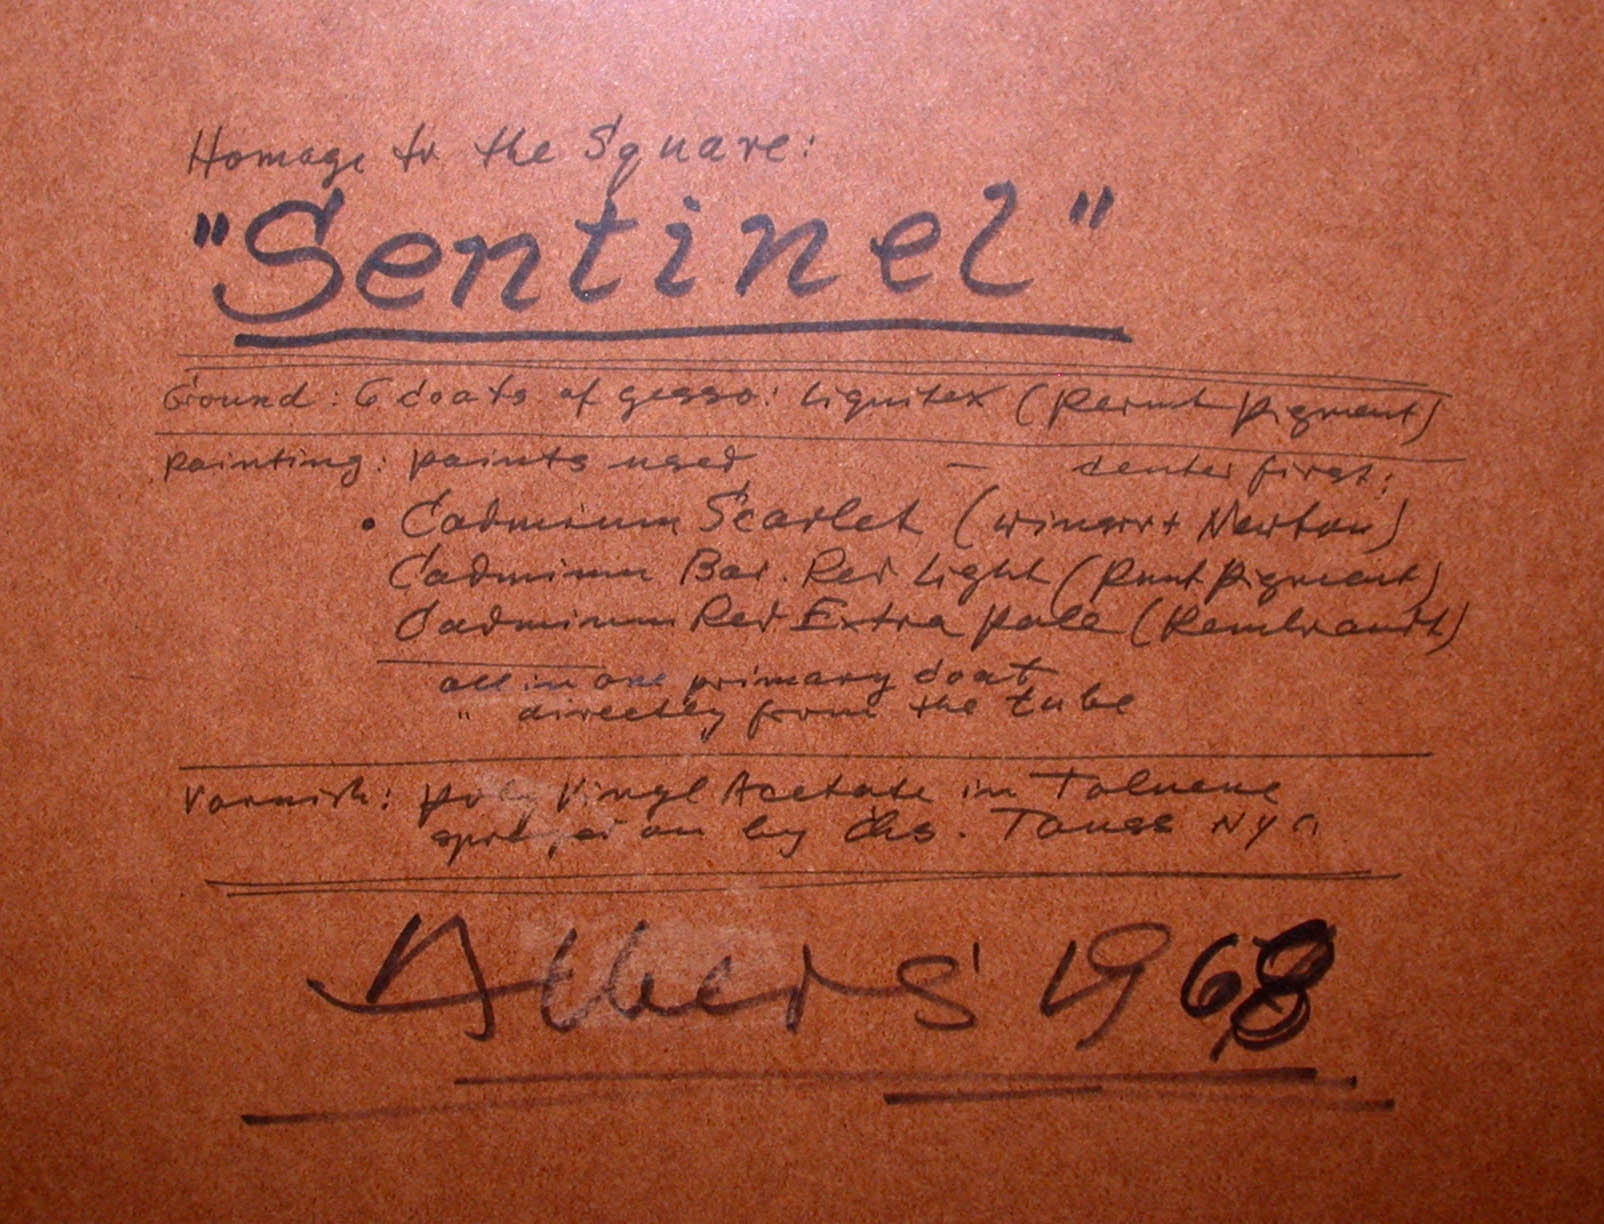 Homage to the Square:
"Sentinel"
Ground: 6 coats of gesso: Liquitex (Permt Pigment)
Painting: paints used — center first:
• Cadmium Scarlet (Winsor + Newton)
Cadmium Bar. Red Light (Pmt Pigment)
Cadmium Red Extra Pale (Rembrandt)
all in one primary coat
" directly from the tube
Varnish: Poly Vinyl Acetate in Toluene
on by Chs. NYC
Albers 1968